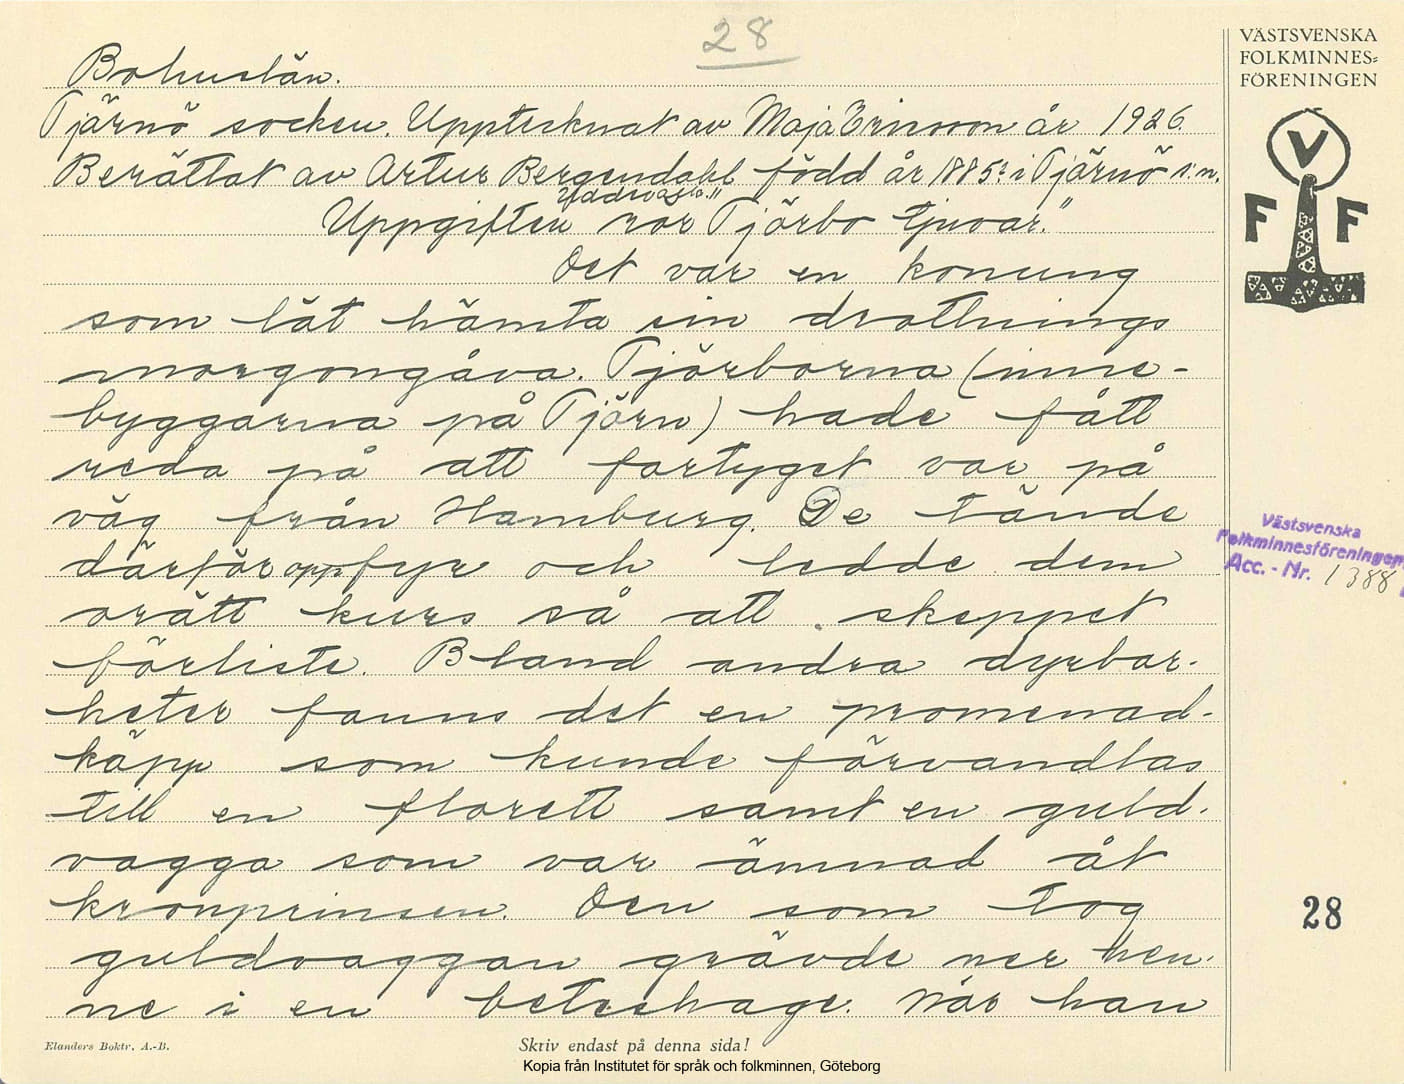 28
Bohuslän.
Tjärnö socken. Upptecknat av Maja Ericson år 1926.
Berättat av Artur Bergendahl född år 1885 i Tjärnö s:n.
Uppgiften rör Tjörbo tjuvar."
Det var en konung
som låt hämta sin drottnings
morgongåva. Tjörborna (inne-
byggarna på Tjörn) hade fått
reda på att fartyget var på
väg från Hamburg. De tände
därför opp fyr och ledde dem
orätt kurs så att skeppet
förliste. Bland andra dyrbar-
heter fanns det en promenad-
käpp som kunde förvandlas
till en florett samt en guld-
vagga som var ämnad åt
kronprinsen. Den som tog
guldvaggan grävde ner hen-
ne i en beteshage. När han
VÄSTSVENSKA
FOLKMINNES-
FÖRENINGEN
V
F F
Västsvenska
Folkminnesföreningen
Acc. - Nr. 1388
28
Elanders Boktr. A.-B.
Skriv endast på denna sida!
Kopia från Institutet för språk och folkminnen, Göteborg